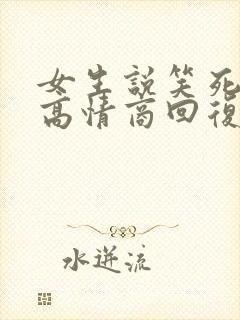 女生說笑死
高情商回復
水逆流